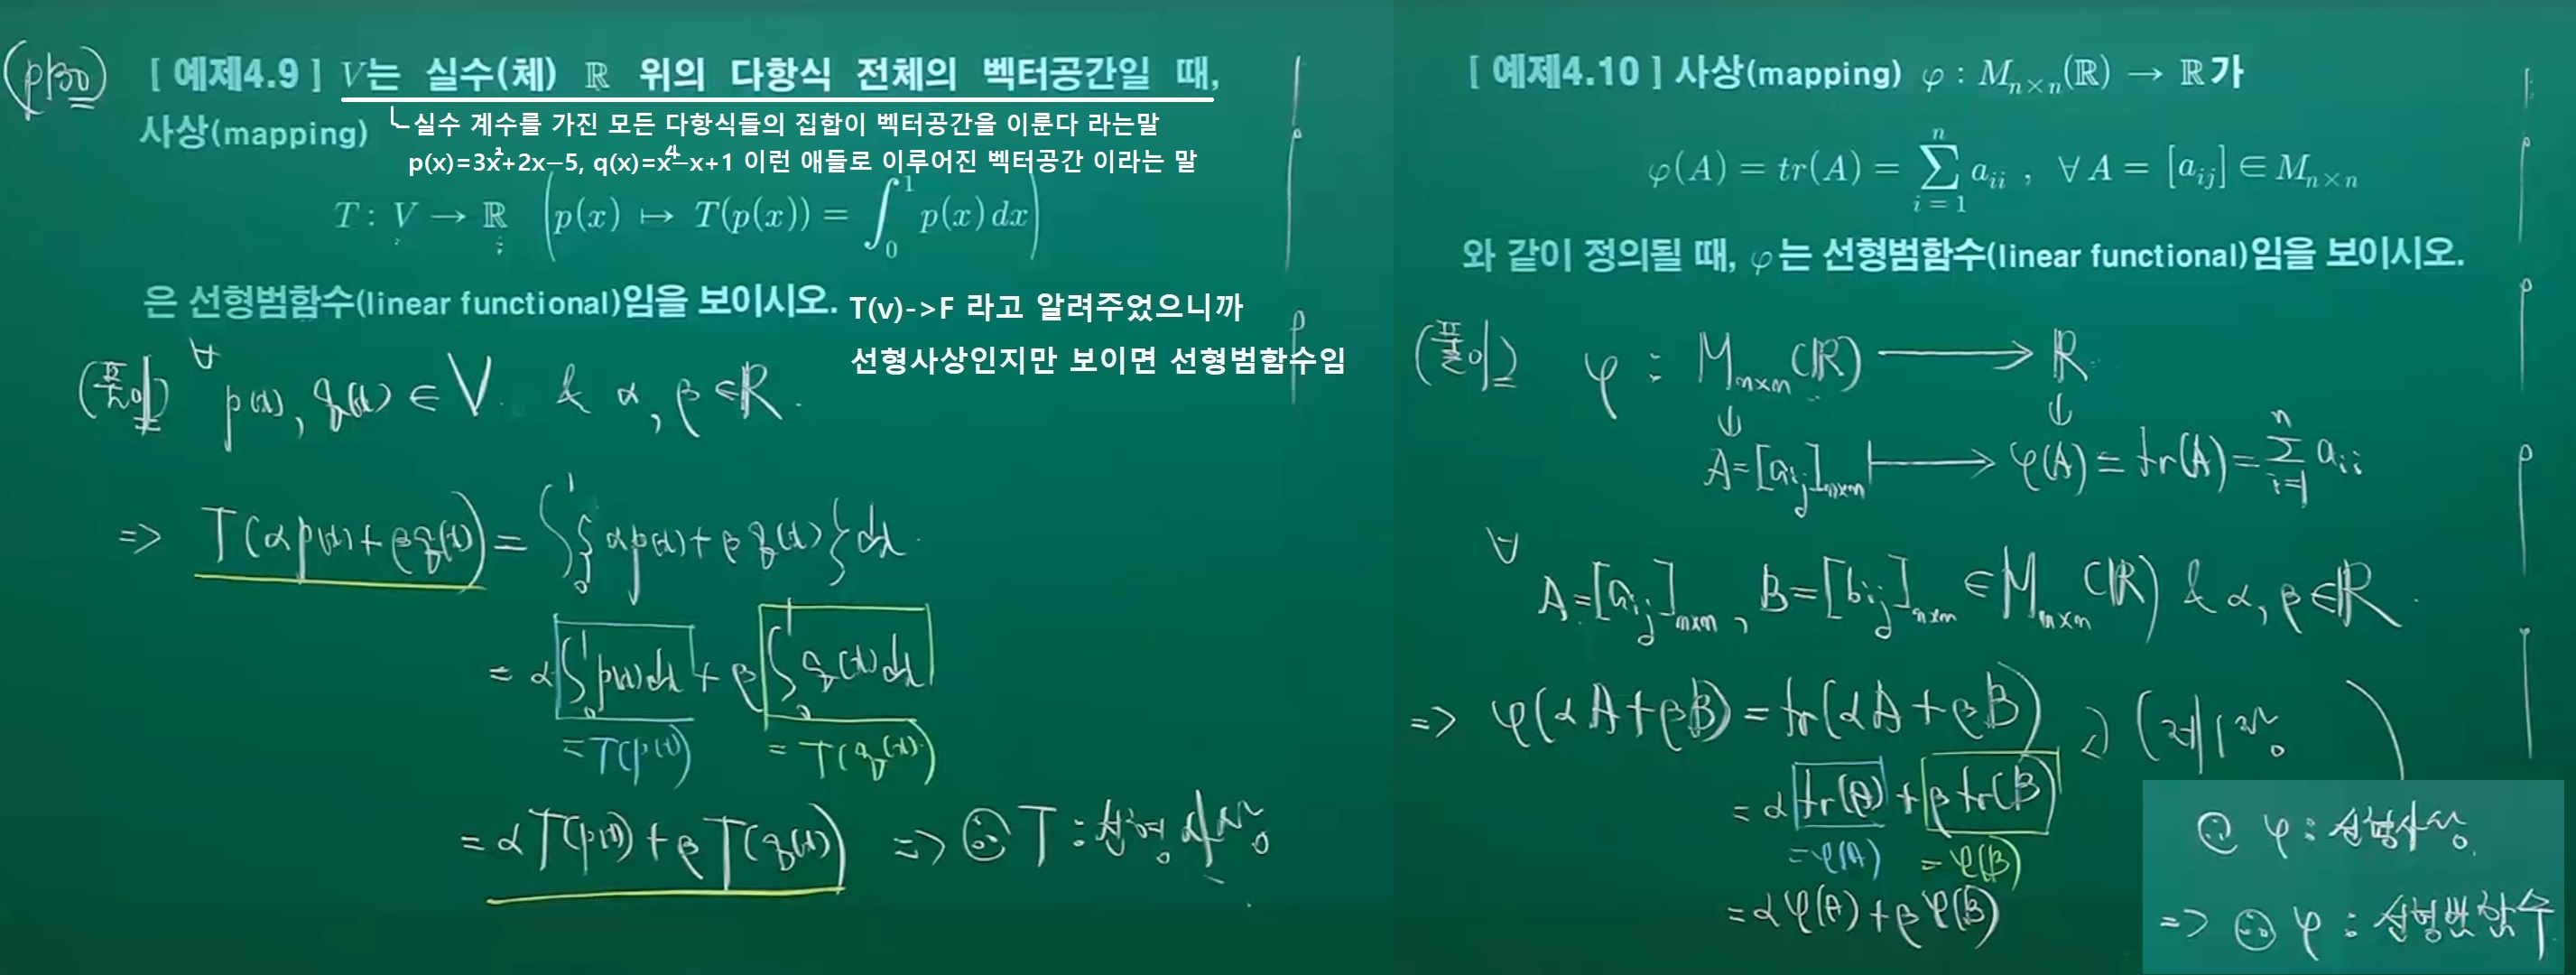 (p130)
[ 예제4.9 ] V는 실수(체) ℝ 위의 다항식 전체의 벡터공간일 때,
사상(mapping)
실수 계수를 가진 모든 다항식들의 집합이 벡터공간을 이룬다 라는말
p(x)=3x²+2x-5, q(x)=x⁴-x+1 이런 애들로 이루어진 벡터공간 이라는 말
T : V → ℝ (p(x) ↦ T(p(x)) = ∫₀¹ p(x) dx)
은 선형범함수(linear functional)임을 보이시오.
T(v)->F 라고 알려주었으니까
선형사상인지만 보이면 선형범함수임
(풀이) ∀ p(x), q(x) ∈ V & α, β ∈ ℝ.
=> T(αp(x)+βq(x)) = ∫₀¹ {αp(x)+βq(x)}dx
= α∫₀¹ p(x)dx + β∫₀¹ q(x)dx
= T(p(x)) = T(q(x))
= αT(p(x)) + βT(q(x)) => ∴ T : 선형사상
[ 예제4.10 ] 사상(mapping) φ : Mₙ×ₙ(ℝ) → ℝ가
φ(A) = tr(A) = Σᵢ₌₁ⁿ aᵢᵢ , ∀ A = [aᵢⱼ] ∈ Mₙ×ₙ
와 같이 정의될 때, φ는 선형범함수(linear functional)임을 보이시오.
(풀이) φ : Mₙ×ₙ(ℝ) → ℝ
A=[aᵢⱼ]ₙ×ₙ ↦ φ(A) = tr(A) = Σᵢ₌₁ⁿ aᵢᵢ
∀ A=[aᵢⱼ]ₙ×ₙ, B=[bᵢⱼ]ₙ×ₙ ∈ Mₙ×ₙ(ℝ) & α, β ∈ ℝ.
=> φ(αA+βB) = tr(αA+βB)
= α tr(A) + β tr(B)
= φ(A) = φ(B)
= αφ(A) + βφ(B)
∴ φ : 선형사상
=> ∴ φ : 선형범함수